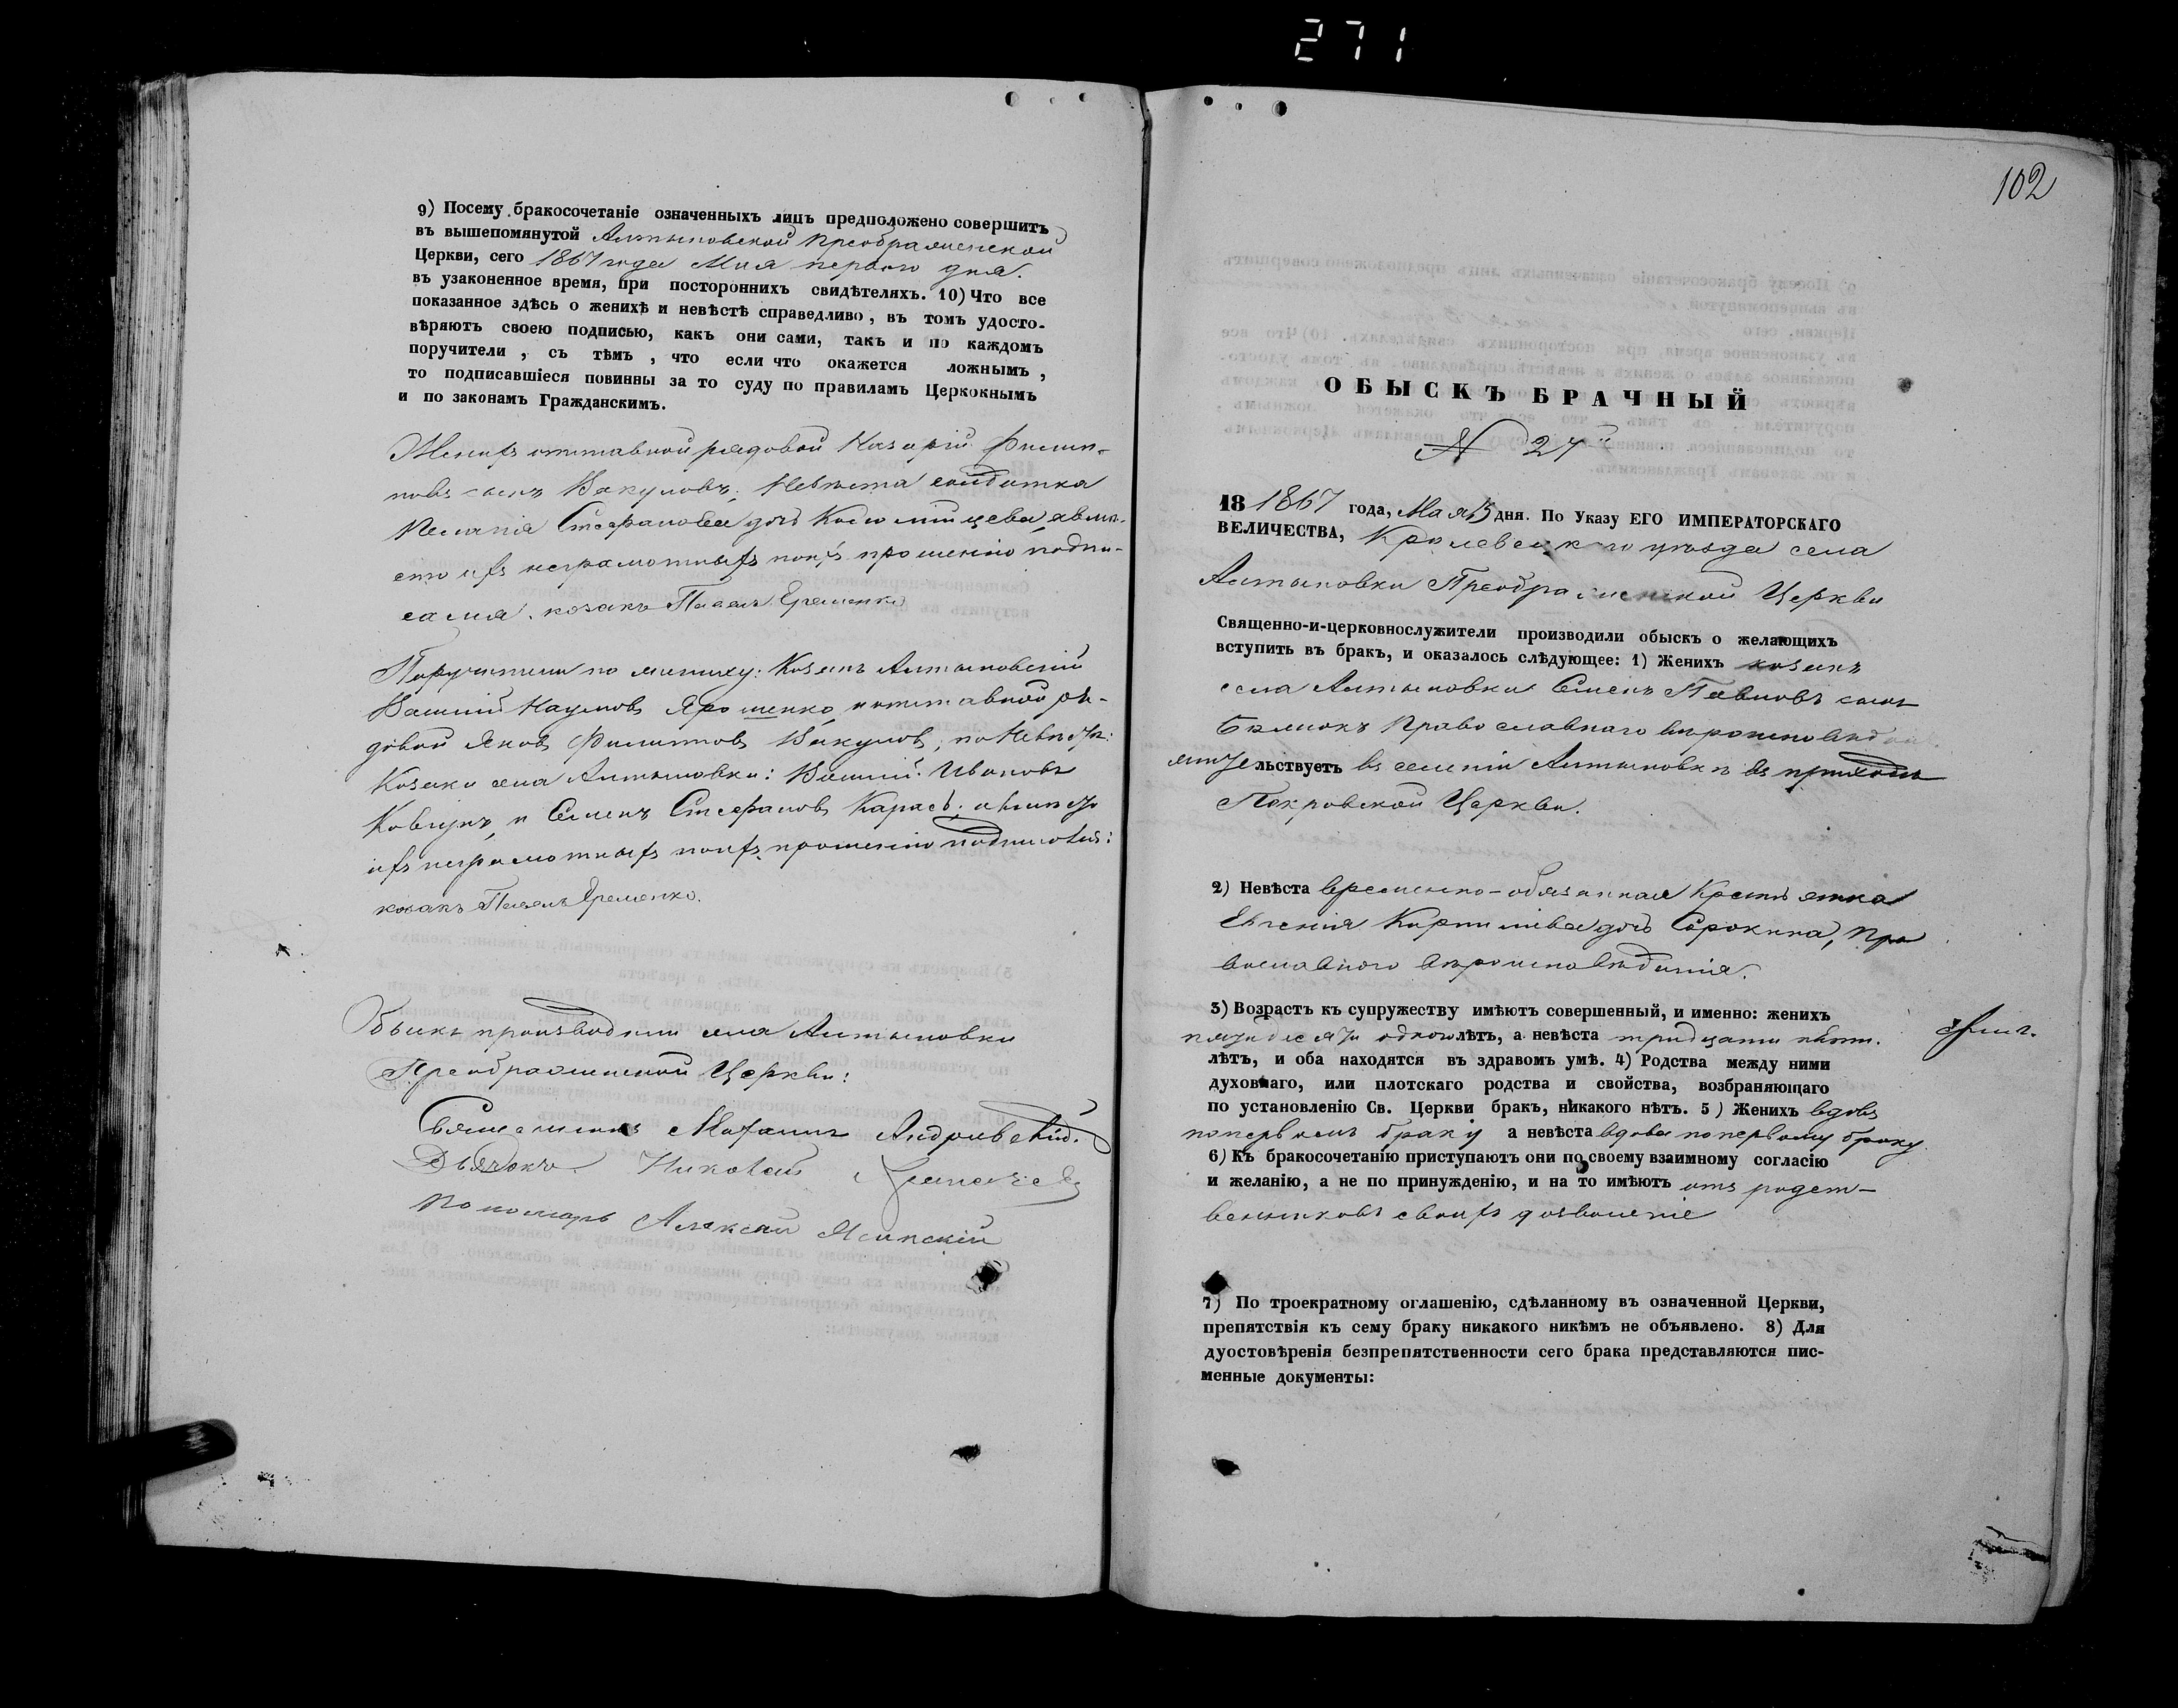 271
9) Посему бракосочетаніе означенныхъ лицъ предположено совершить
въ вышепомянутой Алтыновской Преображенской
Церкви, сего 1867 года Мая перваго дня.
въ узаконенное время, при постороннихъ свидѣтеляхъ. 10) Что все
показанное здѣсь о женихѣ и невѣстѣ справедливо, въ томъ удосто-
вѣряютъ своею подписью, какъ они сами, такъ и по каждомъ
поручители, съ тѣмъ, что если что окажется ложнымъ,
то подписавшіеся повинны за то суду по правиламъ Церкокнымъ
и по законамъ Гражданскимъ.
Женихъ отставной рядовой Назарій Филип-
повъ сынъ Вакуловъ; Невѣста солдатка
Пелагія Стефанова дочь
неграмотныхъ по ихъ прошенію подпи-
сался козакъ Павелъ Еременко
Поручители по жениху: Козакъ Алтыновскій
Василій Наумовъ Ярошенко, и отставной ря-
довой Яковъ Филиповъ Вакуловъ; по Невѣстѣ:
Козаки села Алтыновки: Василій Ивановъ
Ковгунъ, и Семенъ Стефановъ Карась, а вместо
ихъ неграмотныхъ по ихъ прошенію подписался:
козакъ Павелъ Еременко.
Обыскъ производили села Алтыновки
Преображенской Церкви:
Священникъ Андріевскій.
Дьячокъ Николай
Пономарь Алексей Ясинскій
102
ОБЫСКЪ БРАЧНЫЙ
N 27й
18 1867 года, Мая 15 дня. По Указу ЕГО ИМПЕРАТОРСКАГО
ВЕЛИЧЕСТВА, Кролевецкаго уѣзда села
Алтыновки Преображенской Церкви
Священно-и-церковнослужители производили обыскъ о желающихъ
вступить въ бракъ, и оказалось слѣдующее: 1) Женихъ козакъ
села Алтыновки Семенъ Павловъ сынъ
Православнаго вѣроисповѣданія
жительствуетъ въ селеніи Алтыновкѣ въ приходѣ
Покровской Церкви.
2) Невѣста временно-обязанная Крестьянка
Евгенія Карпилова дочь Сорокина, Пра
вославного вѣроисповѣданія.
3) Возрастъ къ супружеству имѣютъ совершенный, и именно: женихъ
пятидесяти одного лѣтъ, а невѣста тридцати пяти
лѣтъ, и оба находятся въ здравомъ умѣ. 4) Родства между ними
духовнаго, или плотскаго родства и свойства, возбраняющаго
по установленію Св. Церкви бракъ, никакого нѣтъ. 5) Женихъ вдовъ
по первомъ браку а невѣста вдова по первому браку
6) Къ бракосочетанію приступаютъ они по своему взаимному согласію
и желанію, а не по принужденію, и на то имѣютъ отъ родст-
венниковъ своихъ дозволеніе
7) По троекратному оглашенію, сдѣланному въ означенной Церкви,
препятствія къ сему браку никакого никѣмъ не объявлено. 8) Для
дуостовѣренія безпрепятственности сего брака представляются пис-
менные документы: